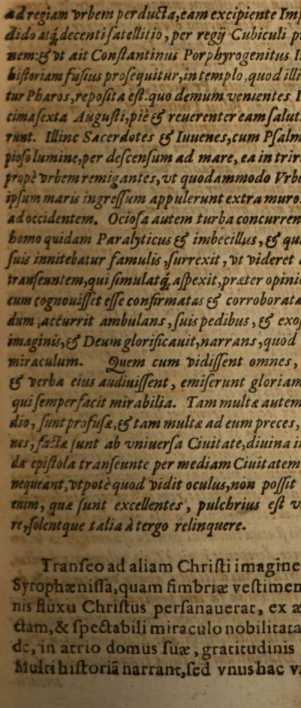 ad regiam vrbem perducta, eam excipiente Im
dido atq́; decenti satellitio, per regij Cubiculi p
nem: & vt ait Constantinus Porphyrogenitus I
historiam fusius prosequitur, in templo, quod illi
tur Pharos, reposita est. quo demum venientes I
cimasexta Augusti, piè & reuerenter eam salut
runt. Illinc Sacerdotes & Iuuenes, cum Psalm
pioso lumine, per descensum ad mare, ea in trir
propè vrbem remigantes, vt quodammodo Vrbe
ipsum maris ingressum appulerunt extra muro
ad occidentem. Ociosa autem turba concurren
homo quidam Paralyticus & imbecillus, & qui
suis innitebatur famulis, surrexit, vt videret
transeuntem, qui simulatq́; aspexit, præter opinio
cum cognouisset esse confirmatas & corroborata
dum, accurrit ambulans, suis pedibus, & exos
imaginis, & Deum glorificauit, narrans, quod
miraculum. Quem cum vidissent omnes,
& verba eius audiuissent, emiserunt gloriam
qui semper facit mirabilia. Tam multæ autem
dio, sunt profusæ, & tam multæ ad eum preces,
nes, factæ sunt ab vniuersa Ciuitate, diuina i
da epistola transeunte per mediam Ciuitatem
nequeant, vtpotè quod vidit oculus, non possit
enim, quæ sunt excellentes, pulchrius est v
re, solentque talia à tergo relinquere.
Transeo ad aliam Christi imagine
Syrophænissa, quam fimbriæ vestimen
nis fluxu Christus persanauerat, ex æ
ctam, & spectabili miraculo nobilitata
de, in atrio domus suæ, gratitudinis
Multi historiā narrant, sed vnus hac va